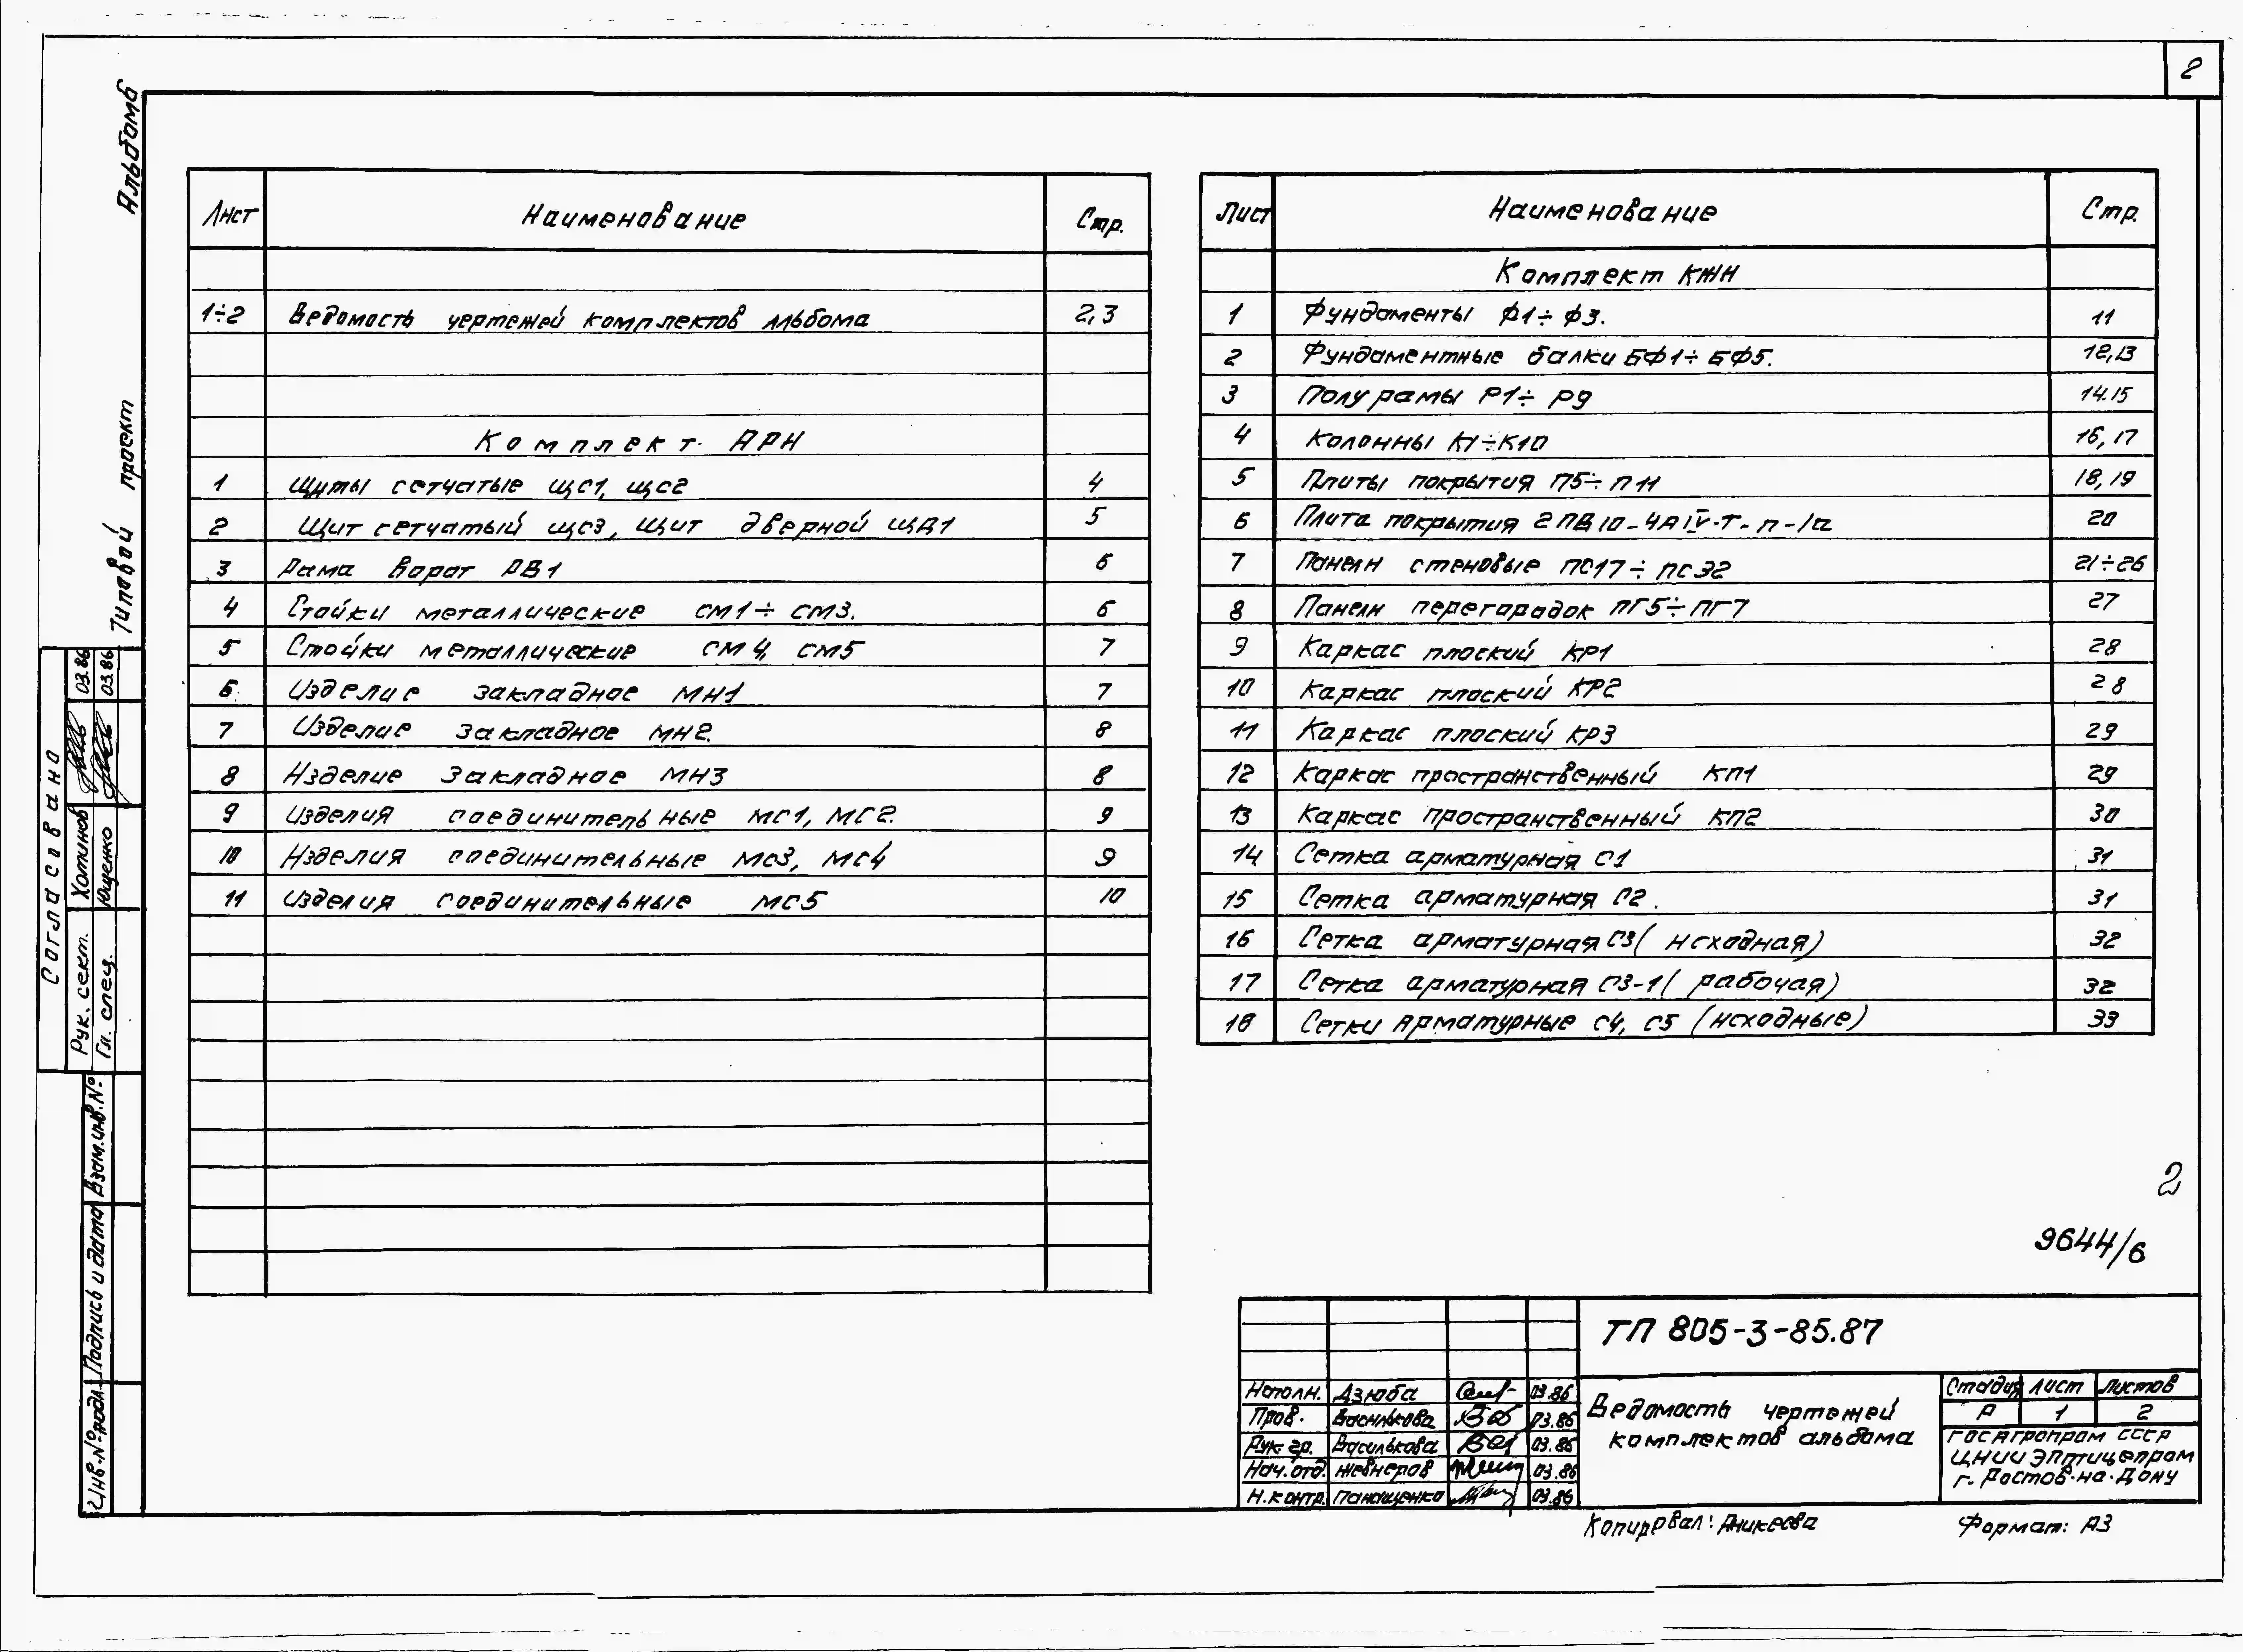 2
Альбом 6
Типовой проект
Лист Наименование Стр.
1÷2 Ведомость чертежей комплектов альбома 2,3
Комплект АРН
1 Щиты сетчатые ЩС1, ЩС2 4
2 Щит сетчатый ЩС3, Щит дверной ЩД1 5
3 Рама ворот РВ1 6
4 Стойки металлические СМ1÷СМ3. 6
5 Стойки металлические СМ4, СМ5 7
6 Изделие закладное МН1 7
7 Изделие закладное МН2. 8
8 Изделие закладное МН3 8
9 Изделия соединительные МС1, МС2. 9
10 Изделия соединительные МС3, МС4 9
11 Изделия соединительные МС5 10
Лист Наименование Стр.
Комплект КЖН
1 Фундаменты Ф1÷Ф3. 11
2 Фундаментные балки БФ1÷БФ5. 12,13
3 Полурамы Р1÷Р9 14.15
4 Колонны К1÷К10 16,17
5 Плиты покрытия П5÷П11 18,19
6 Плита покрытия 2ПД10-4АIV-Т-П-1а 20
7 Панели стеновые ПС17÷ПС32 21÷26
8 Панели перегородок ПГ5÷ПГ7 27
9 Каркас плоский КР1 28
10 Каркас плоский КР2 28
11 Каркас плоский КР3 29
12 Каркас пространственный КП1 29
13 Каркас пространственный КП2 30
14 Сетка арматурная С1 31
15 Сетка арматурная С2. 31
16 Сетка арматурная С3 (исходная) 32
17 Сетка арматурная С3-1 (рабочая) 32
18 Сетки арматурные С4, С5 (исходные) 33
Согласовано
Рук. сект. Хотинов 03.86
Гл. спец. Ющенко 03.86
Взам.инв.№
Подпись и дата
Инв.№подл.
2
9644/6
ТП 805-3-85.87
Исполн. Дзюба 03.86
Пров. Василькова 03.86
Рук.гр. Василькова 03.86
Нач.отд. Жевнеров 03.86
Н.контр. Панащенко 03.86
Ведомость чертежей
комплектов альбома
Стадия Лист Листов
Р 1 2
Госагропром СССР
ЦНИИЭПптицепром
г. Ростов-на-Дону
Копировал: Аникеева Формат: А3